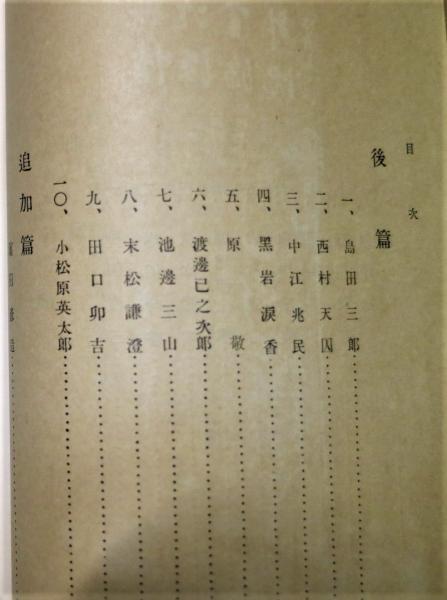 目次
後篇
一、島田三郎
二、西村天囚
三、中江兆民
四、黑岩淚香
五、原敬
六、渡邊巳之次郎
七、池邊三山
八、末松謙澄
九、田口卯吉
一〇、小松原英太郎
追加篇